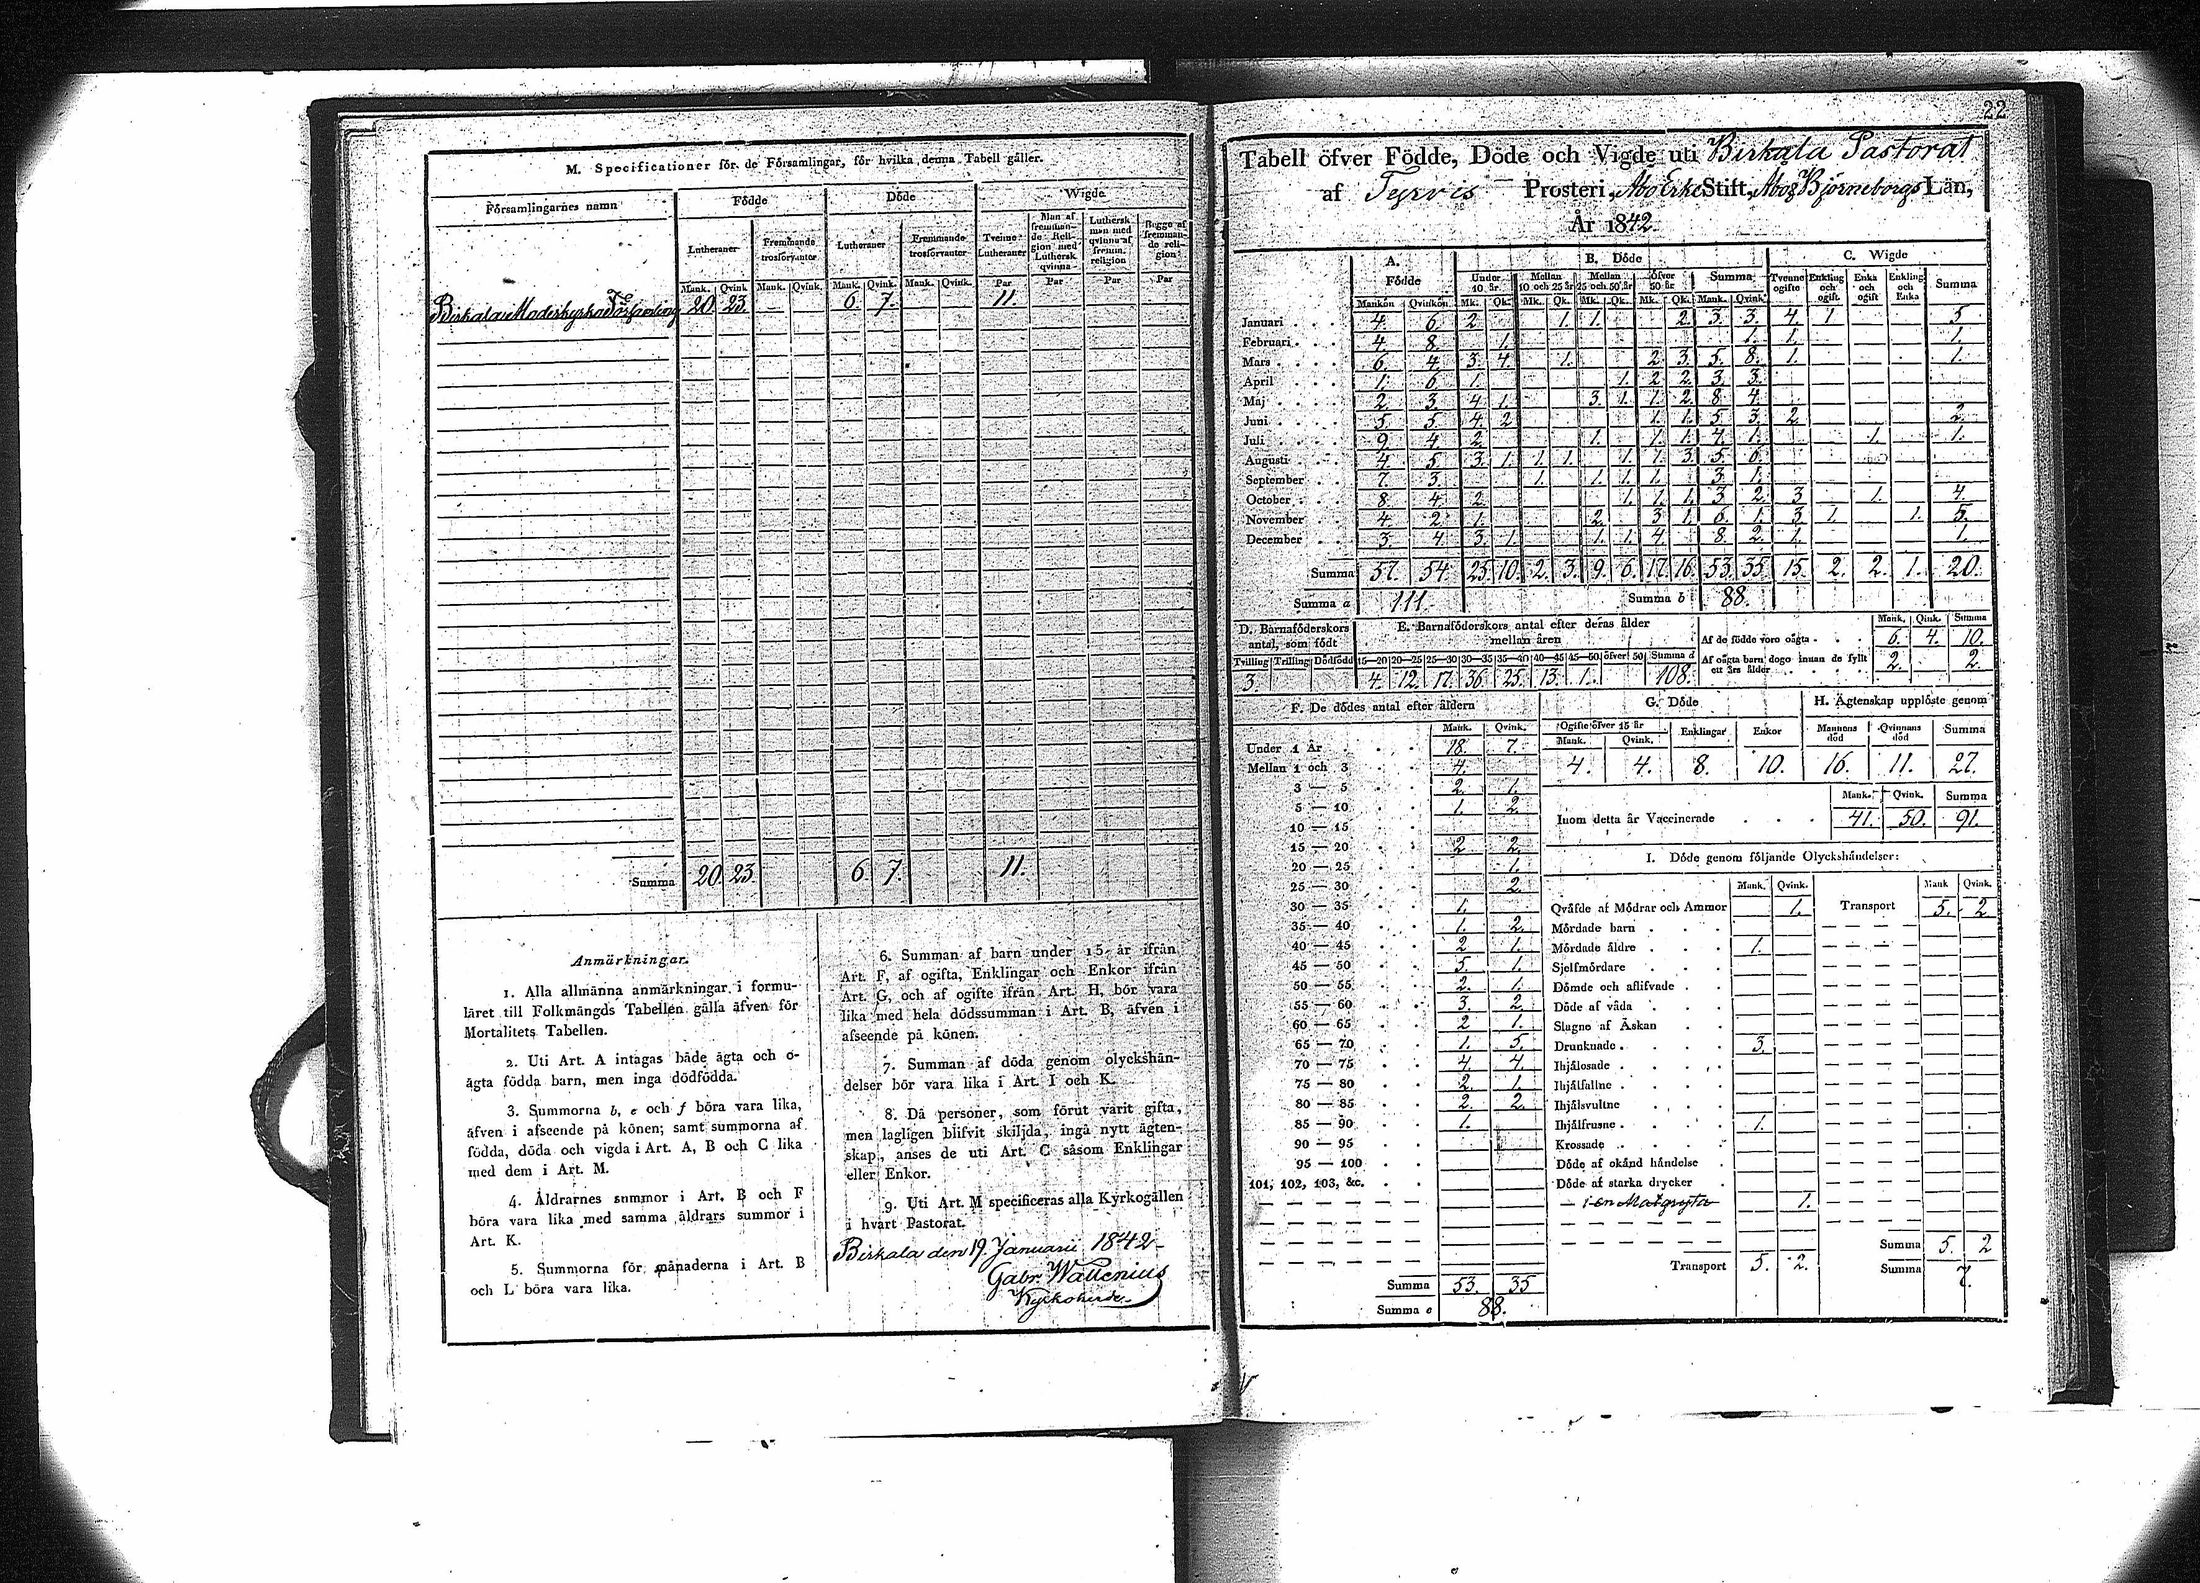 M. Specificationer för de Församlingar, för hvilka denna Tabell gäller.
Församlingarnes namn Födde Döde Wigde
Lutheraner Fremmande trosförvanter Lutheraner Fremmande trosförvanter Tvenne Lutheraner Man af fremmande Religion med Luthersk qvinna Luthersk man med qvinna af fremm. religion Begge af fremmande religion
Mank. Qvink Mank. Qvink. Mank. Qvink. Mank. Qvink. Par Par Par Par
Birkala Moderkyrko Församling 20. 23. 6. 7. 11.
Summa 20. 23. 6. 7. 11.
Anmärkningar.
1. Alla allmänna anmärkningar i formu-
läret till Folkmängds Tabellen gälla äfven för
Mortalitets Tabellen.
2. Uti Art. A intagas både ägta och o-
ägta födda barn, men inga dödfödda.
3. Summorna b, e och f böra vara lika,
äfven i afseende på könen; samt summorna af
födda, döda och vigda i Art. A, B och C lika
med dem i Art. M.
4. Åldrarnes summor i Art. B och F
böra vara lika med samma åldrars summor i
Art. K.
5. Summorna för månaderna i Art. B
och L böra vara lika.
6. Summan af barn under 15 år ifrån
Art. F, af ogifta, Enklingar och Enkor ifrån
Art. G, och af ogifte ifrån Art. H, bör vara
lika med hela dödssumman i Art. B, äfven i
afseende på könen.
7. Summan af döda genom olyckshän-
delser bör vara lika i Art. I och K.
8. Då personer, som förut varit gifta,
men lagligen blifvit skiljda, ingå nytt ägten-
skap, anses de uti Art. C såsom Enklingar
eller Enkor.
9. Uti Art. M specificeras alla Kyrkogällen
i hvart Pastorat.
Birkala den 19. Januarii 1842
Gabr. Wallenius
Kyrkoherde
22
Tabell öfver Födde, Döde och Vigde uti Birkala Pastorat
af Tyrvis Prosteri, Åbo Erke Stift, Åbo & Björneborgs Län,
År 1842.
A. Födde B. Döde C. Wigde
Under 10 år Mellan 10 och 25 år Mellan 25 och 50 år Öfver 50 år Summa Tvenne ogifte Enkling och ogift Enka och ogift Enkling och Enka Summa
Mankön Qvinkön Mk. Qk. Mk. Qk. Mk. Qk. Mk. Qk. Mank. Qvink.
Januari 4. 6. 2. 1. 1. 2. 3. 3. 4. 1. 5.
Februari 4. 8. 1. 1. 1. 1.
Mars 6. 4. 3. 4. 1. 2. 3. 5. 8. 1. 1.
April 1. 6. 1. 1. 2. 2. 3. 3.
Maj 2. 3. 4. 1. 3. 1. 1. 2. 8. 4.
Juni 5. 5. 4. 2 1. 1. 5. 3. 2. 2.
Juli 9. 4. 2. 1. 1. 1. 4. 1. 1. 1.
Augusti 4. 5. 3. 1. 1. 1. 1. 1. 3. 5. 6.
September 7. 3. 1. 1. 1. 1. 3. 1.
October 8. 4. 2. 1. 1. 1. 3. 2. 3. 1. 4.
November 4. 2. 1. 2. 3. 1. 6. 1. 3. 1. 1. 5.
December 3. 4. 3. 1. 1. 1. 4. 8. 2. 1. 1.
Summa 57. 54. 25. 10. 2. 3. 9. 6. 17. 16. 53. 35. 15. 2. 2. 1. 20.
Summa a 111. Summa b 88.
D. Barnaföderskors antal, som födt
E. Barnaföderskors antal efter deras ålder mellan åren
Mank. Qink. Summa
Af de födde voro oägta 6. 4. 10.
Af oägta barn dogo innan de fyllt ett års ålder 2. 2.
Tvilling Trilling Dödfödd 15—20 20—25 25—30 30—35 35—40 40—45 45—50 öfver 50 Summa d
3. 4. 12. 17. 36. 25. 13. 1. 108.
F. De dödes antal efter åldern
Mank. Qvink.
Under 1 År 18. 7.
Mellan 1 och 3 4.
3 — 5 2. 1.
5 — 10 1. 2.
10 — 15
15 — 20 2 2.
20 — 25 1.
25 — 30 2.
30 — 35 1.
35 — 40 1. 2.
40 — 45 2 1.
45 — 50 5. 1.
50 — 55 2. 1.
55 — 60 3. 2.
60 — 65 2 1.
65 — 70 1. 5.
70 — 75 4. 4.
75 — 80 2. 1.
80 — 85 2. 2.
85 — 90 1.
90 — 95
95 — 100
101, 102, 103, &c.
Summa 53. 35
Summa e 88.
G. Döde
Ogifte öfver 15 år Enklingar Enkor
Mank. Qvink.
4. 4. 8. 10.
H. Ägtenskap upplöste genom
Mannens död Qvinnans död Summa
16. 11. 27.
Mank. Qvink. Summa
Inom detta år Vaccinerade 41. 50. 91.
I. Döde genom följande Olyckshändelser:
Mank. Qvink. Mank Qvink.
Qväfde af Mödrar och Ammor 1. Transport 5. 2
Mördade barn
Mördade äldre 1.
Sjelfmördare
Dömde och aflifvade
Döde af våda
Slagne af Åskan
Drunknade 3.
Ihjälosade
Ihjälfallne
Ihjälsvultne
Ihjälfrusne 1.
Krossade
Döde af okänd händelse
Döde af starka drycker
i en Matgryta 1.
Transport 5. 2.
Summa 5. 2
Summa 7.